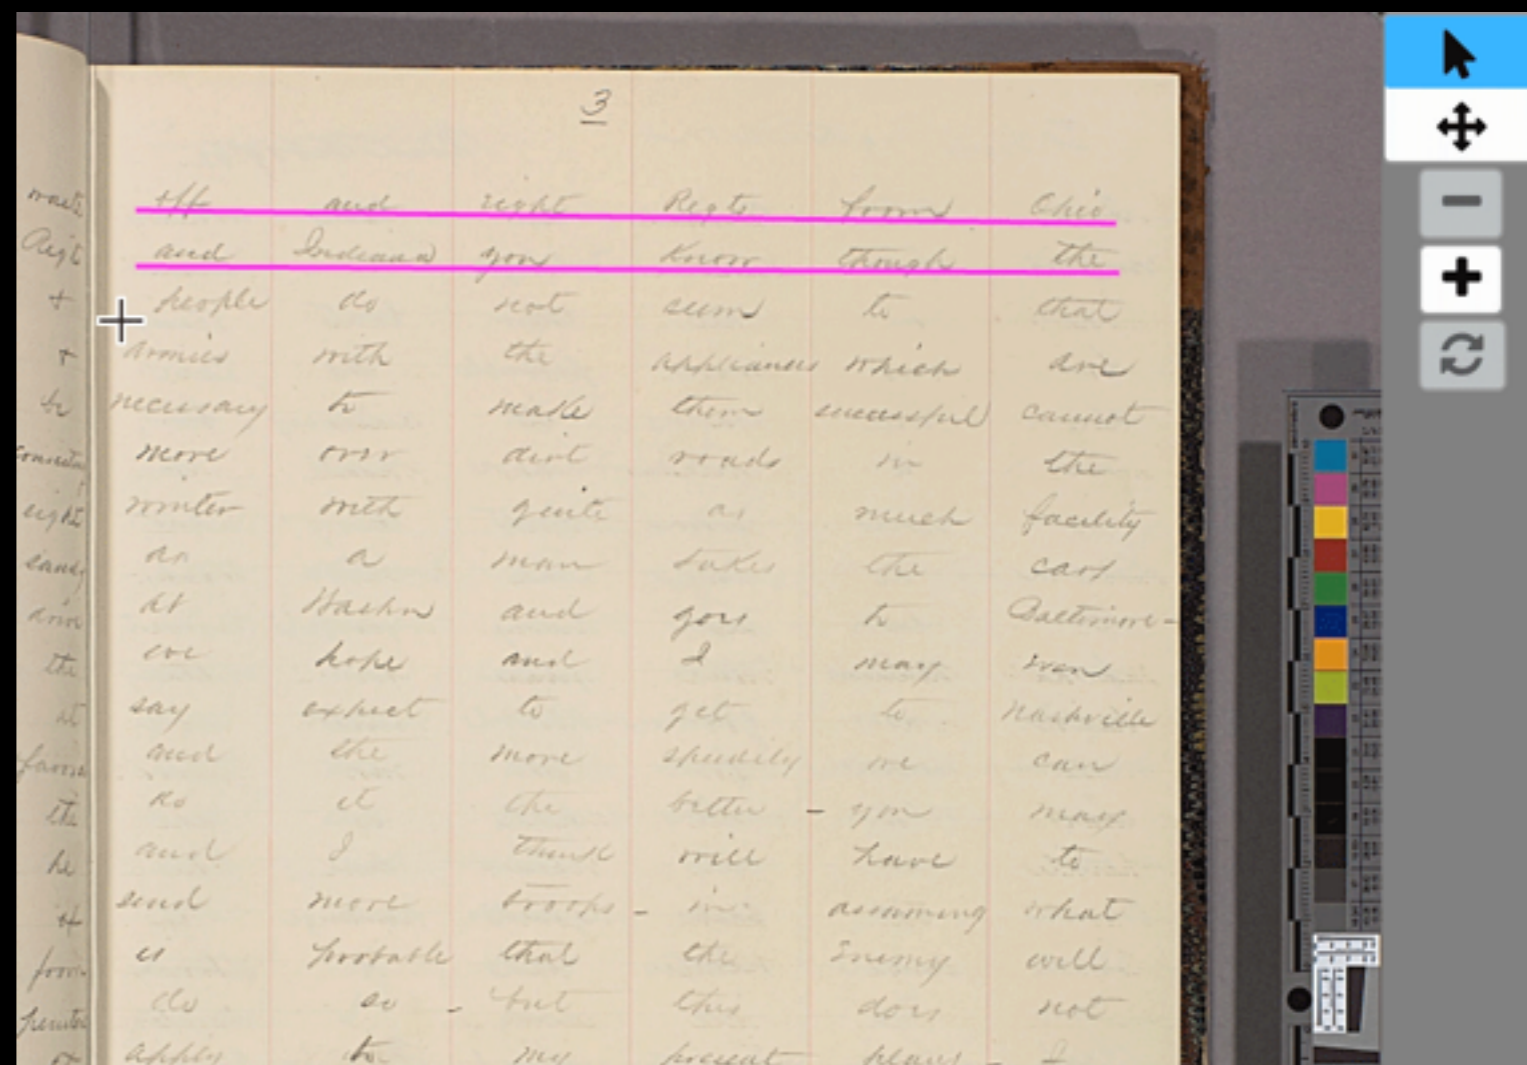 3
off and eight Regts from Ohio
and Indiana you know though the
people do not seem to that
armies with the appliances which are
necessary to make them successful cannot
move over dirt roads in the
winter with quite as much facility
as a man takes the cars
at Washn and goes to Baltimore -
we hope and I may even
say expect to get to Nashville
and the more speedily we can
do it the better - you may
and I think will have to
send more troops - in assuming what
is probable that the Enemy will
do so - but this does not
apply to my present plans - I
waste
Regt
+
+
be
eight
the
at
favor
the
he
it